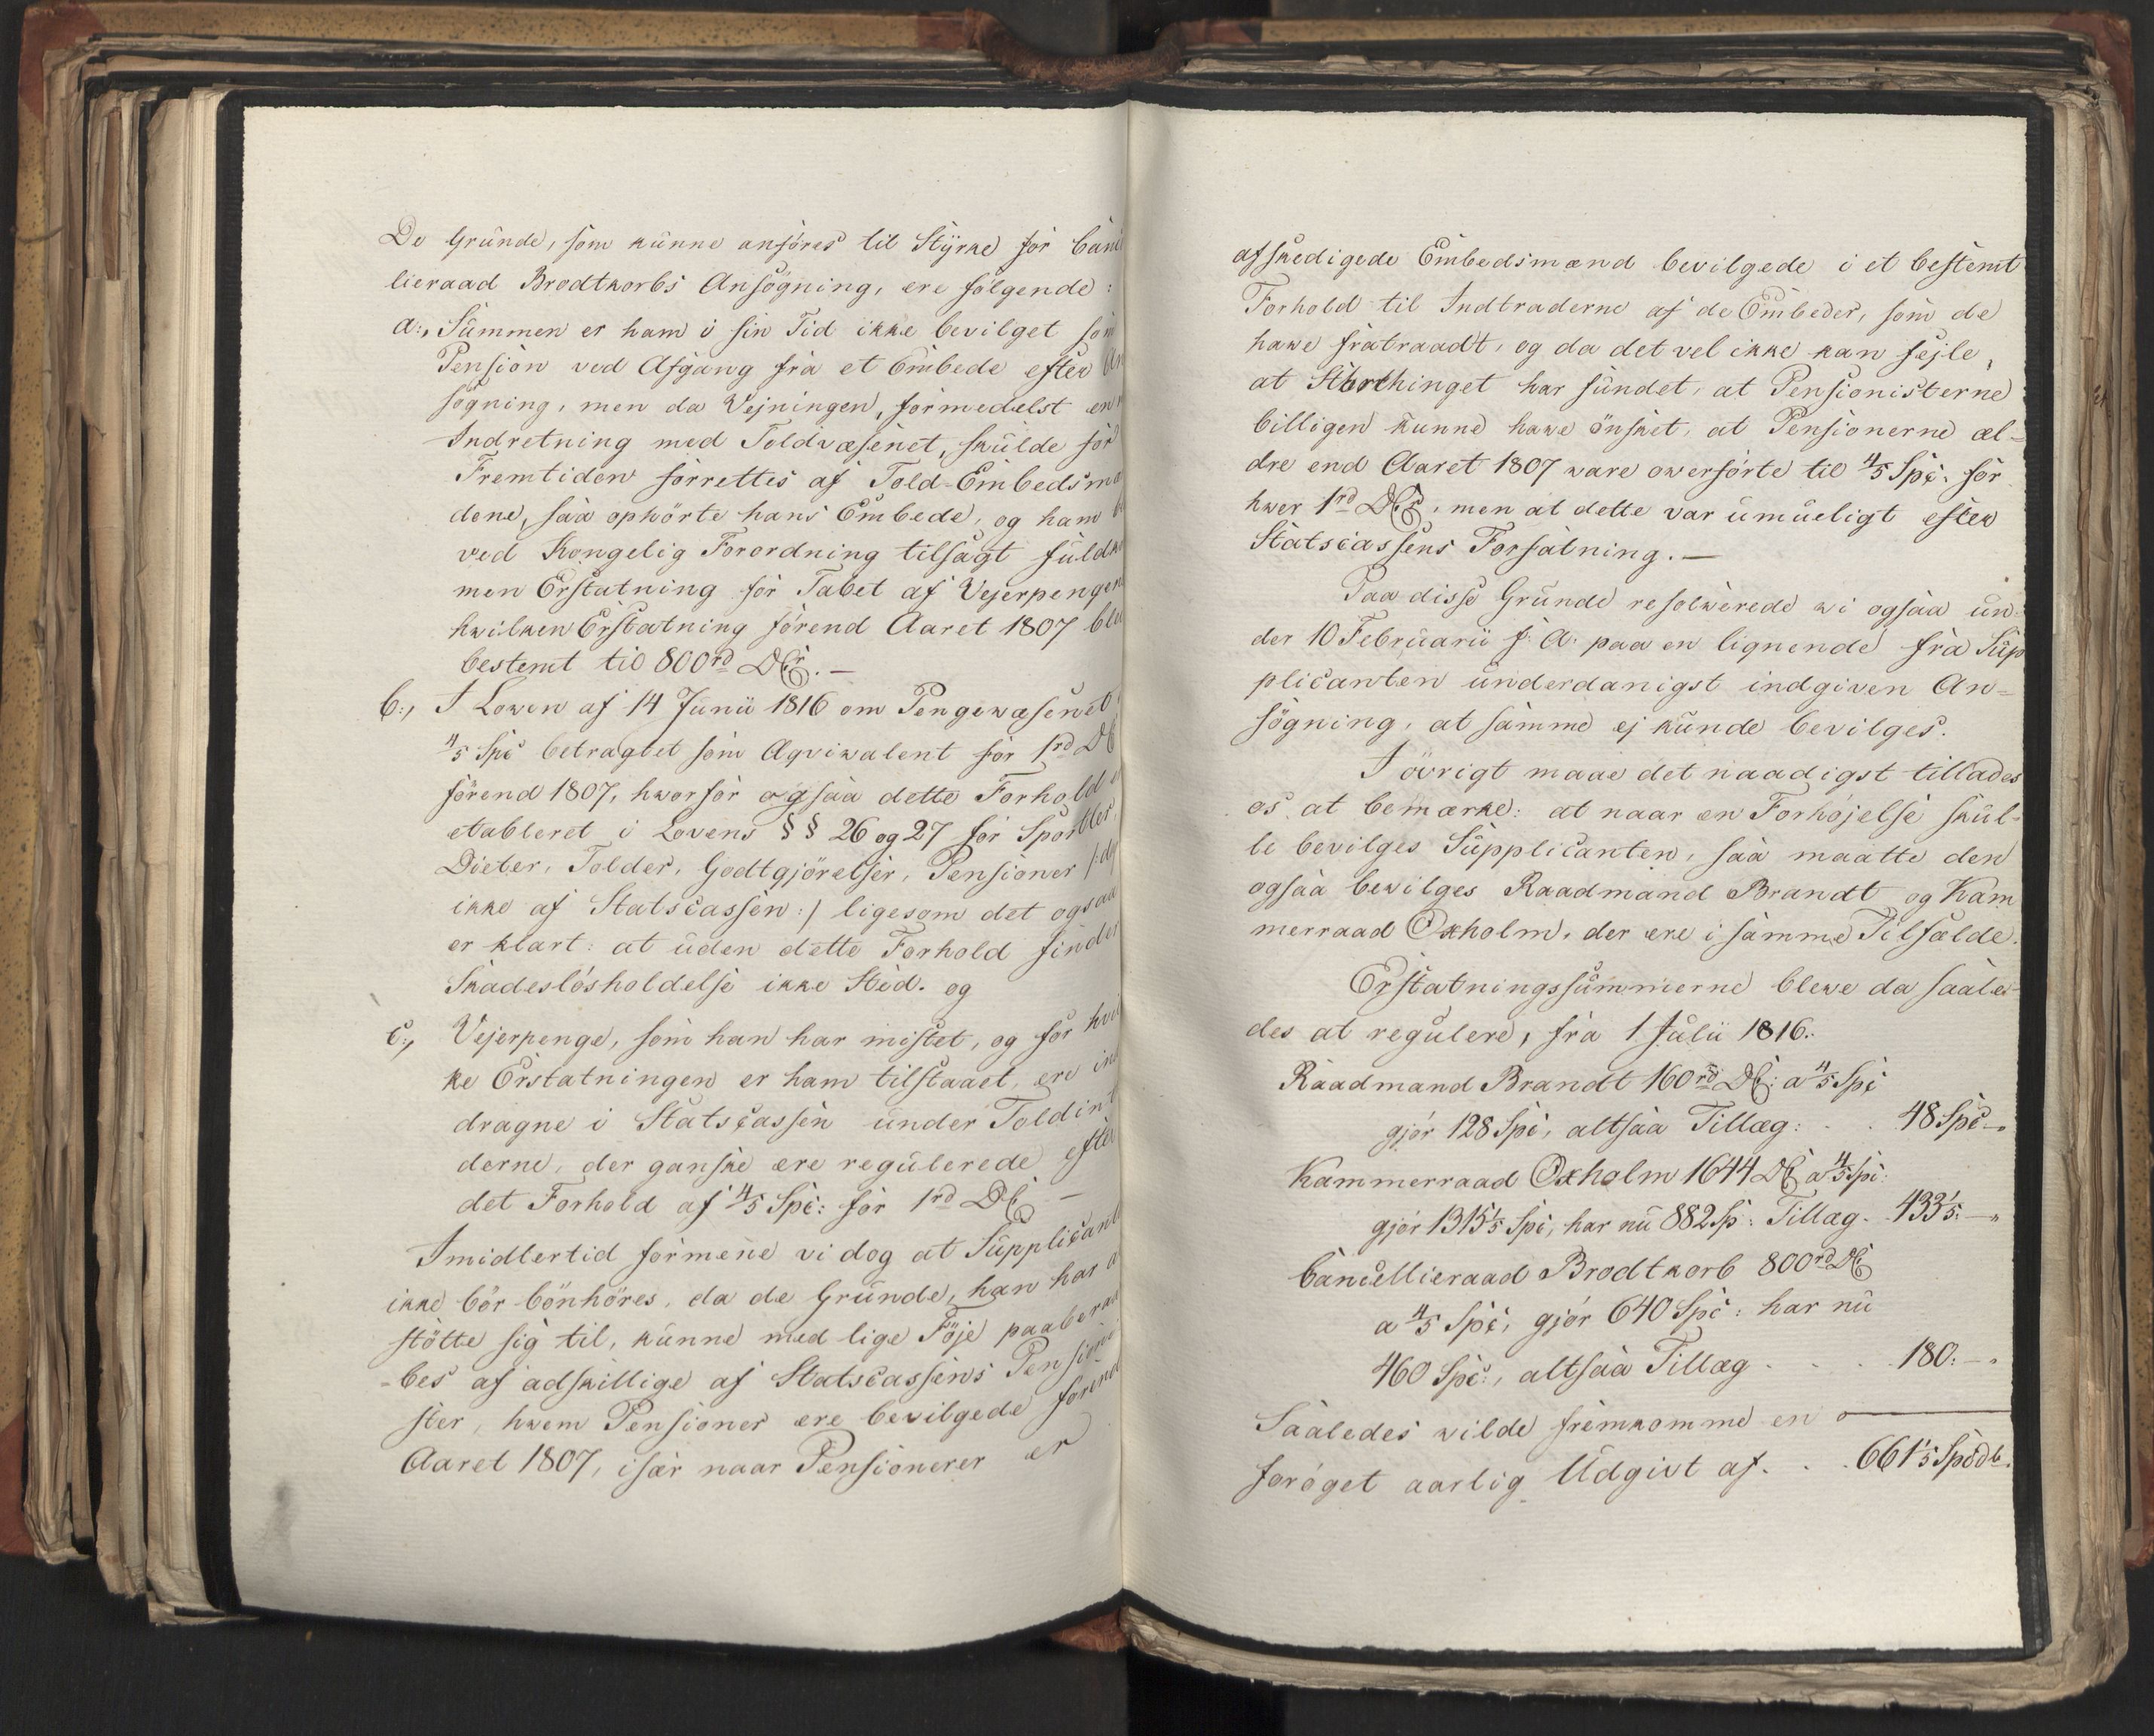 De Grunde, som kunne anföres til Styrke for Canc
lieraad Brodtkorbs Ansögning, ere følgende:
a:, Summen er ham i sin Tid ikke bevilget som
Pension ved Afgang fra et Embede efter An
søgning, men da Vejningen, formedelst en
Indretning med Toldvæsenet, skulde for
Fremtiden forrettes af Told-Embedsmæ
dene, saa ophörte hans Embede, og ham
ved Kongelig Forordning tilsagt fuldko
men Erstatning for Tabet af Vejerpengene
hvilken Erstatning förend Aaret 1807 blev
bestemt til 800 rd DCr. —
b:, I Loven af 14 Junii 1816 om Pengevæsenet
4/5 Spc betragtet som Æqvivalent for 1 rd DC
förend 1807, hvorfor ogsaa dette Forhold er
etableret i Lovens §§ 26 og 27 for Sportler,
Dieter, Tolder, Godtgjörelser, Pensioner /:dog
ikke af Statscassen:/ ligesom det ogsaa
er klart: at uden dette Forhold finder
Skadeslösholdelse ikke Sted. og
c:, Vejerpenge, som han har mistet, og for hvil
ke Erstatningen er ham tilstaaet, ere ind
dragne i Statscassen under Toldint
derne, der ganske ere regulerede efter
det Forhold af 4/5 Spc: for 1 rd DC —
Imidlertid formene vi dog at Supplicant
ikke bör bönhöres, da de Grunde, han har a
stötte sig til, kunne med lige Föje paaberaa
-bes af adskillige af Statscassens Pensioni-
ster, hvem Pensioner ere bevilgede förend
Aaret 1807, især naar Pensionerer er
afskedigede Embedsmænd bevilgede i et bestemt
Forhold til Indtraderne af de Embeder, som de
have fratraadt, og da det vel ikke kan fejle,
at Storthinget har fundet, at Pensionisterne
billigen kunne have önsket, at Pensionerne æl-
dre end Aaret 1807 vare overförte til 4/5 Spc: for
hver 1 rd DC, men at dette var umueligt efter
Statscassens Forfatning. —
Paa disse Grunde resolverede vi ogsaa un-
der 10 Februarii f: A: paa en lignende fra Sup
plicanten underdanigst indgiven An=
sögning, at samme ej kunde bevilges.
I övrigt maae det naadigst tillades
os at bemærke: at naar en Forhöjelse skul-
le bevilges Supplicanten, saa maatte den
ogsaa bevilges Raadmand Brandt og Kam
merraad Oxholm, der ere i samme Tilfælde.
Erstatningssummerne bleve da saale-
des at regulere, fra 1 Julii 1816:
Raadmand Brandt 160 rd DC: a 4/5 Spc
gjör 128 Spc, altsaa Tillæg: . . 48 Spc —"
Kammerraad Oxholm 1644 DC a 4/5 Spc:
gjör 1315 1/5 Spc, har nu 882 Sp: Tillæg. 433 1/5: —"
Cancellieraad Brodtkorb 800 rd DC
a 4/5 Spc, gjör 640 Spc: har nu
460 Spc:, altsaa Tillæg . . . 180: —"
Saaledes vilde fremkomme en
foröget aarlig Udgivt af. . . 661 1/5 Spcdlr.